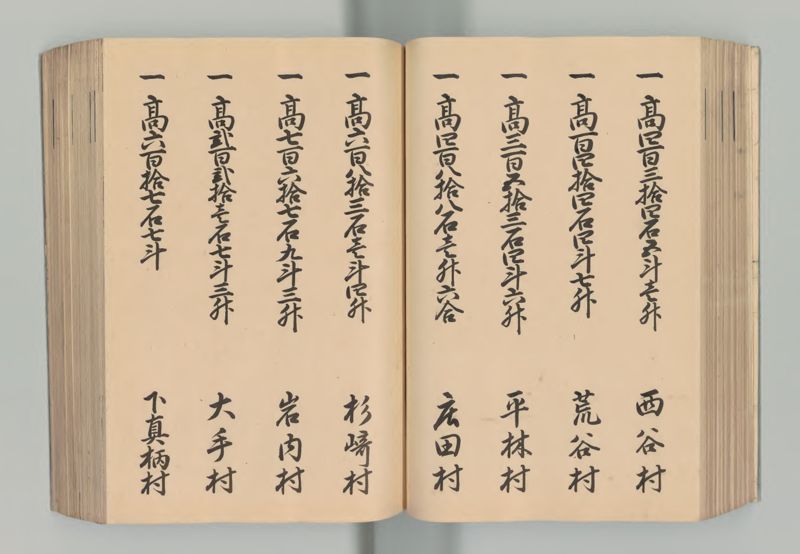 一 高四百三拾四石五斗壱升 西谷村
一 高百四拾四石四斗七升 荒谷村
一 高三百五拾三石四斗六升 平林村
一 高四百八拾八石壱升六合 庄田村
一 高六百八拾三石壱斗四升 杉崎村
一 高七百六拾七石九斗三升 岩内村
一 高弐百弐拾壱石七斗三升 大手村
一 高六百拾七石七斗 下真柄村